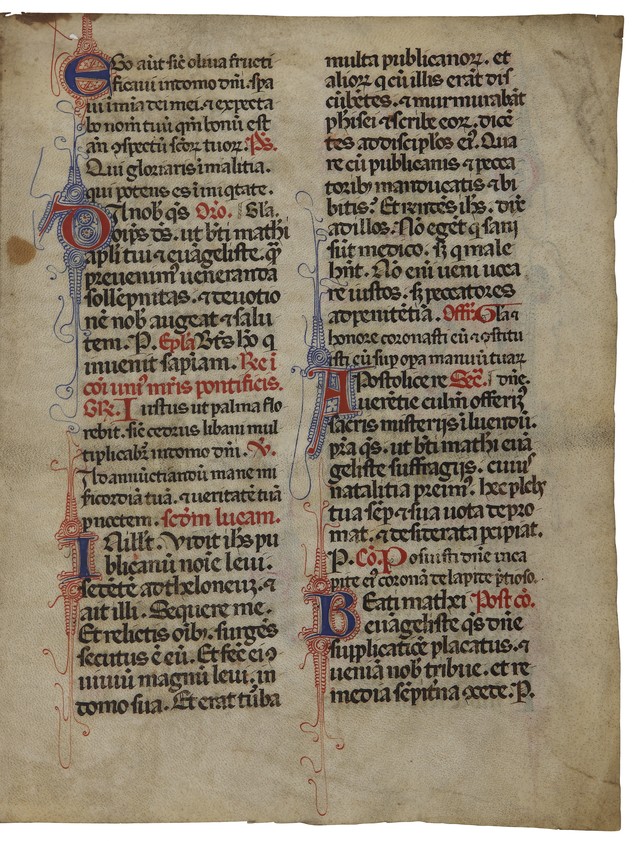 Ego aūt sic̄ oliua fructi
ficaui in domo dn̄i. spa
ui in mīa dei mei. ⁊ expecta
bo nom̄ tuū qm̄ bonū est
an̄ ꝯspectū scōꝝ tuoꝝ. P̄s.
Qui gloriaris ī malitia.
qui potens es ī iniqtate.
Da nob̄ qs Oro. Gla.
ōips ds. ut bt̄i mathi
apl̄i tui ⁊ euāgeliste. q̄
preuenim᷒ ueneranda
sollēpnitas. ⁊ deuotio
nē nob̄ augeat ⁊ salu
tem. P. Epl̄a Bt̄s ho q
inuenit sapiam. Re i
cōi uni᷒ mr̄is pontificis.
GR. Iustus ut palma flo
rebit. sic̄ cedrus libani mul
tiplicabr̄ in domo dn̄i. V.
Ad annūctiandū mane mi
sericordiā tuā. ⁊ ueritatē tuā
p noctem. scd̄m lucam.
In ill̄t. Vidit ihs pu
blicanū noīe leui.
sedētē ad theloneuz. ⁊
ait illi. Sequere me.
Et relictis oīb᷒. surgēs
secutus ē eū. Et fec̄ ei ꝯ
uiuiū magnū leui. in
domo sua. Et erat tūba
multa publicanoꝝ. et
alioꝝ q cū illis erāt dis
cūbētes. ⁊ murmurabāt
phisei ⁊ scribe eoꝝ. dicē
tes ad discip̄los ei᷒. Qua
re cū publicanis ⁊ pecca
torib᷒ manducatis ⁊ bi
bitis? Et rn̄dēs ihs. dix̄
ad illos. Nō eget q sani
sūt medico. sꝫ q male
hn̄t. Nō eni ueni uoca
re iustos. sꝫ peccatores
ad penitētiā. Offī᷒ Gl̄a ⁊
honore coronasti eū ⁊ ꝯstitu
isti eū sup opa manuū tuaꝝ
Apostolice re Sec̄. dn̄e.
uerētie culm̄ offerīs᷒
sacris misteriis ī luendū.
p̄ra qs. ut bt̄i mathi euā
geliste suffragijs. cuiu᷒
natalitia preim᷒. hec plebs
tua sēp ⁊ sua uota depro
mat. ⁊ desiderata pcipiat.
P. Cō. Posuisti dn̄e in ca
pite ei᷒ coronā de lapide p̄tioso.
Beati mathei Post cō.
euāgeliste qs dn̄e
supplicatōe placatus. ⁊
ueniā nob̄ tribue. et re
media sēpit̄na ꝯcede. P.